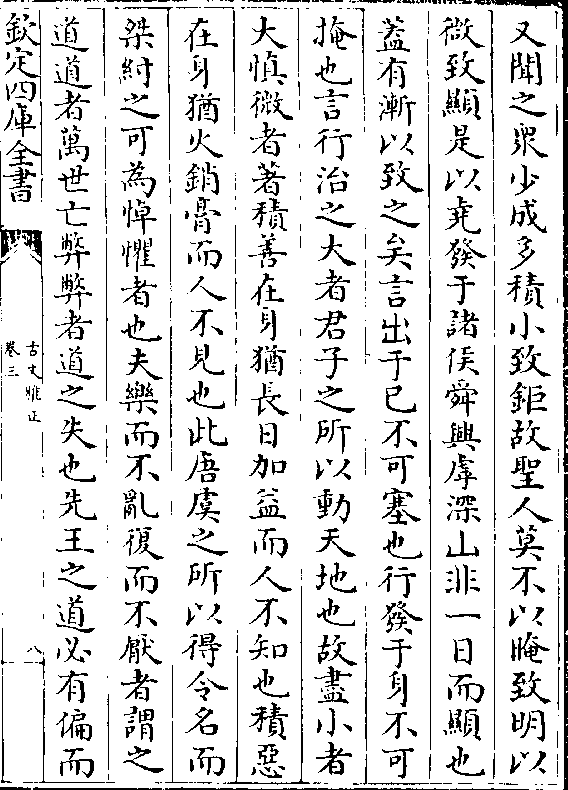 又聞之衆少成多積小致鉅故聖人莫不以晻致明以
微致顯是以堯發于諸侯舜興虖深山非一日而顯也
葢有漸以致之矣言出于已不可塞也行發于身不可
掩也言行治之大者君子之所以動天地也故盡小者
大慎微者著積善在身猶長日加益而人不知也積惡
在身猶火銷膏而人不見也此唐虞之所以得令名而
桀紂之可為悼懼者也夫樂而不亂復而不厭者謂之
道道者萬世亡弊弊者道之失也先王之道必有偏而
欽定四庫全書
古文雅正
卷三
八